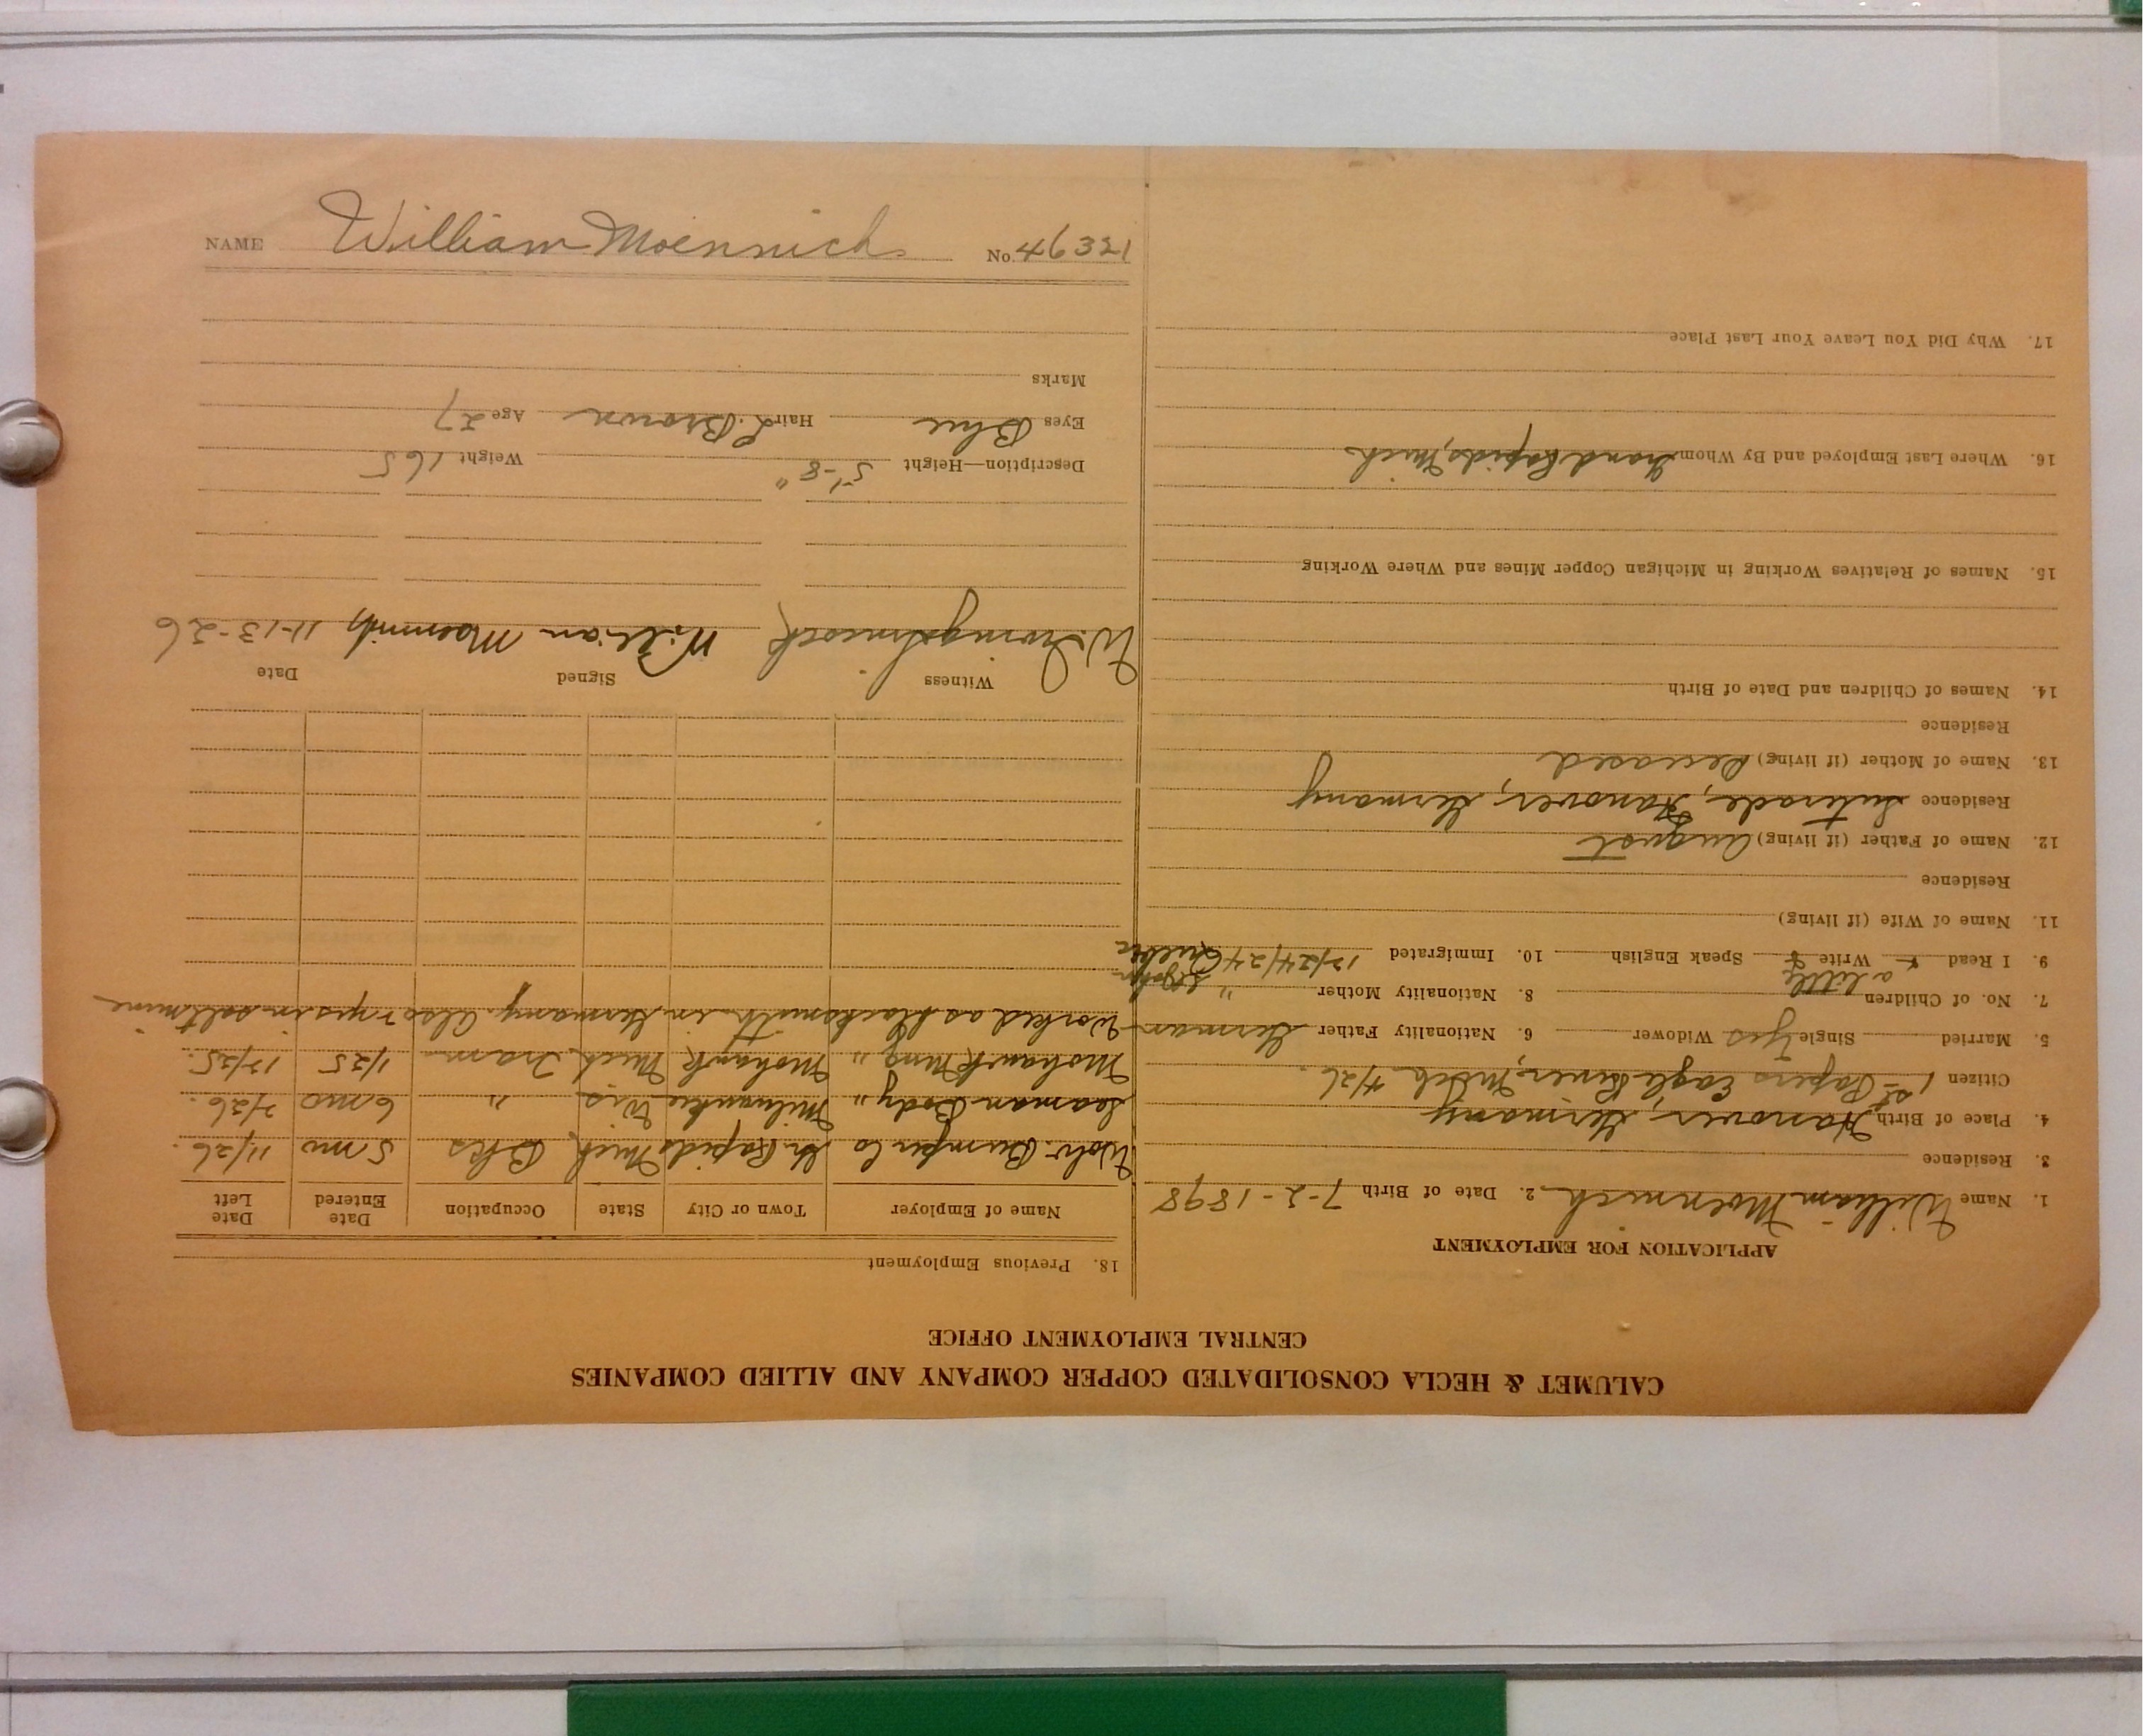 NAME William Moennich No. 46321
CALUMET & HECLA CONSOLIDATED COPPER COMPANY AND ALLIED COMPANIES
CENTRAL EMPLOYMENT OFFICE
APPLICATION FOR EMPLOYMENT
1. Name William Moennich 2. Date of Birth 7-2-1898
3. Residence
4. Place of Birth Hanover, Germany
Citizen 1st Papers Eagle River, Mich. 4/26.
5. Married Single Yes Widower 6. Nationality Father German
7. No. of Children 8. Nationality Mother "
a little St John
9. I Read Write Speak English 10. Immigrated 12/24/24 Quebec
11. Name of Wife (if living)
Residence
12. Name of Father (if living) August
Residence Hanover, Germany
13. Name of Mother (if living) Deceased
Residence
14. Names of Children and Date of Birth
15. Names of Relatives Working in Michigan Copper Mines and Where Working
16. Where Last Employed and By Whom Grand Rapids, Mich
17. Why Did You Leave Your Last Place
18. Previous Employment
Name of Employer Town or City State Occupation Date Entered Date Left
Wolv. Bumper Co Gr. Rapids Mich Blks 5 mo 11/26.
Seaman Body " Milwaukee Wis " 6 mo 7/26.
Mohawk Mng " Mohawk Mich Tram 1/25 12/25.
Worked as blacksmith in Germany. Also yrs in salt mine
Witness Signed Date
William Moennich 11-13-26
Description—Height 5'-8" Weight 165
Eyes Blue Hair L. Brown Age 27
Marks